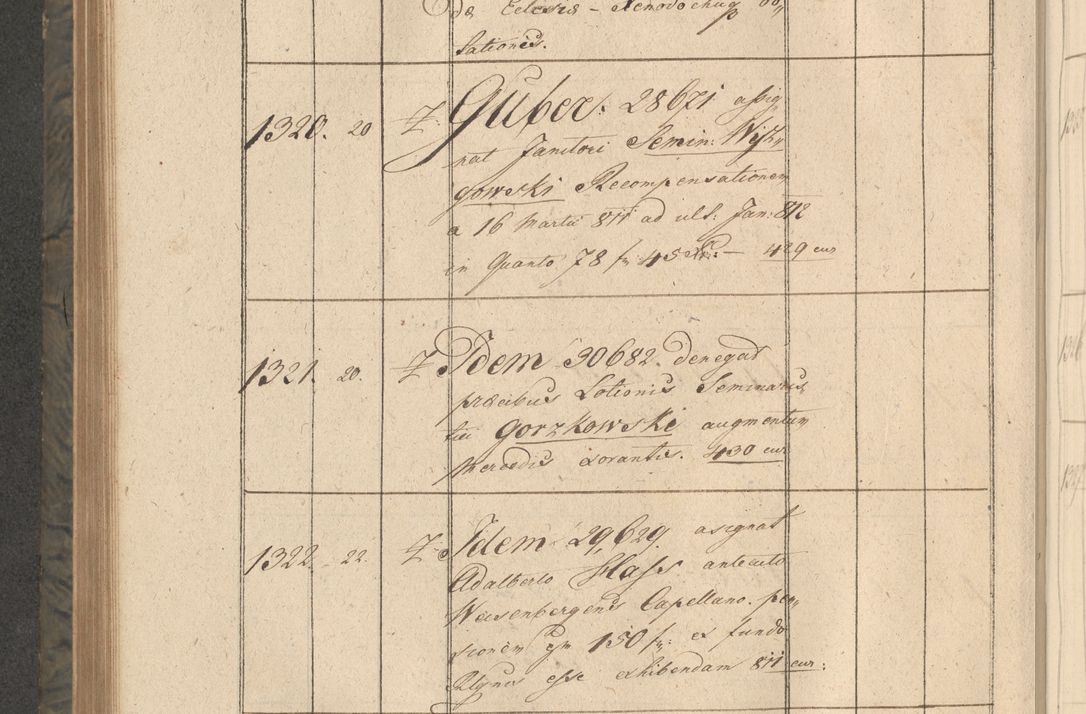 de Eclesiæ - Xenodochu
sationis.
1320. 20 Z Guber. 28621 assig-
nat Janitori Semin: Wysz-
gowski Recompensationem
a 16 Martii 811 ad ult. Jan: 812
in Quanto 78 fr 45 xr. – 429 cur
1321. 20. Z Idem 30682. denegat
præcibus Lotionis Seminaris-
tici Gorzkowski augmentum
Mercedis exorantis. 430 cur
1322. 22. Z Idem 29,629. asignat
Adalberto Hass antecuto
Weisenbergens Capellano. pen-
sionem 150 fr: ex fundo
Rlgnis esse exhibendam 811 cur: